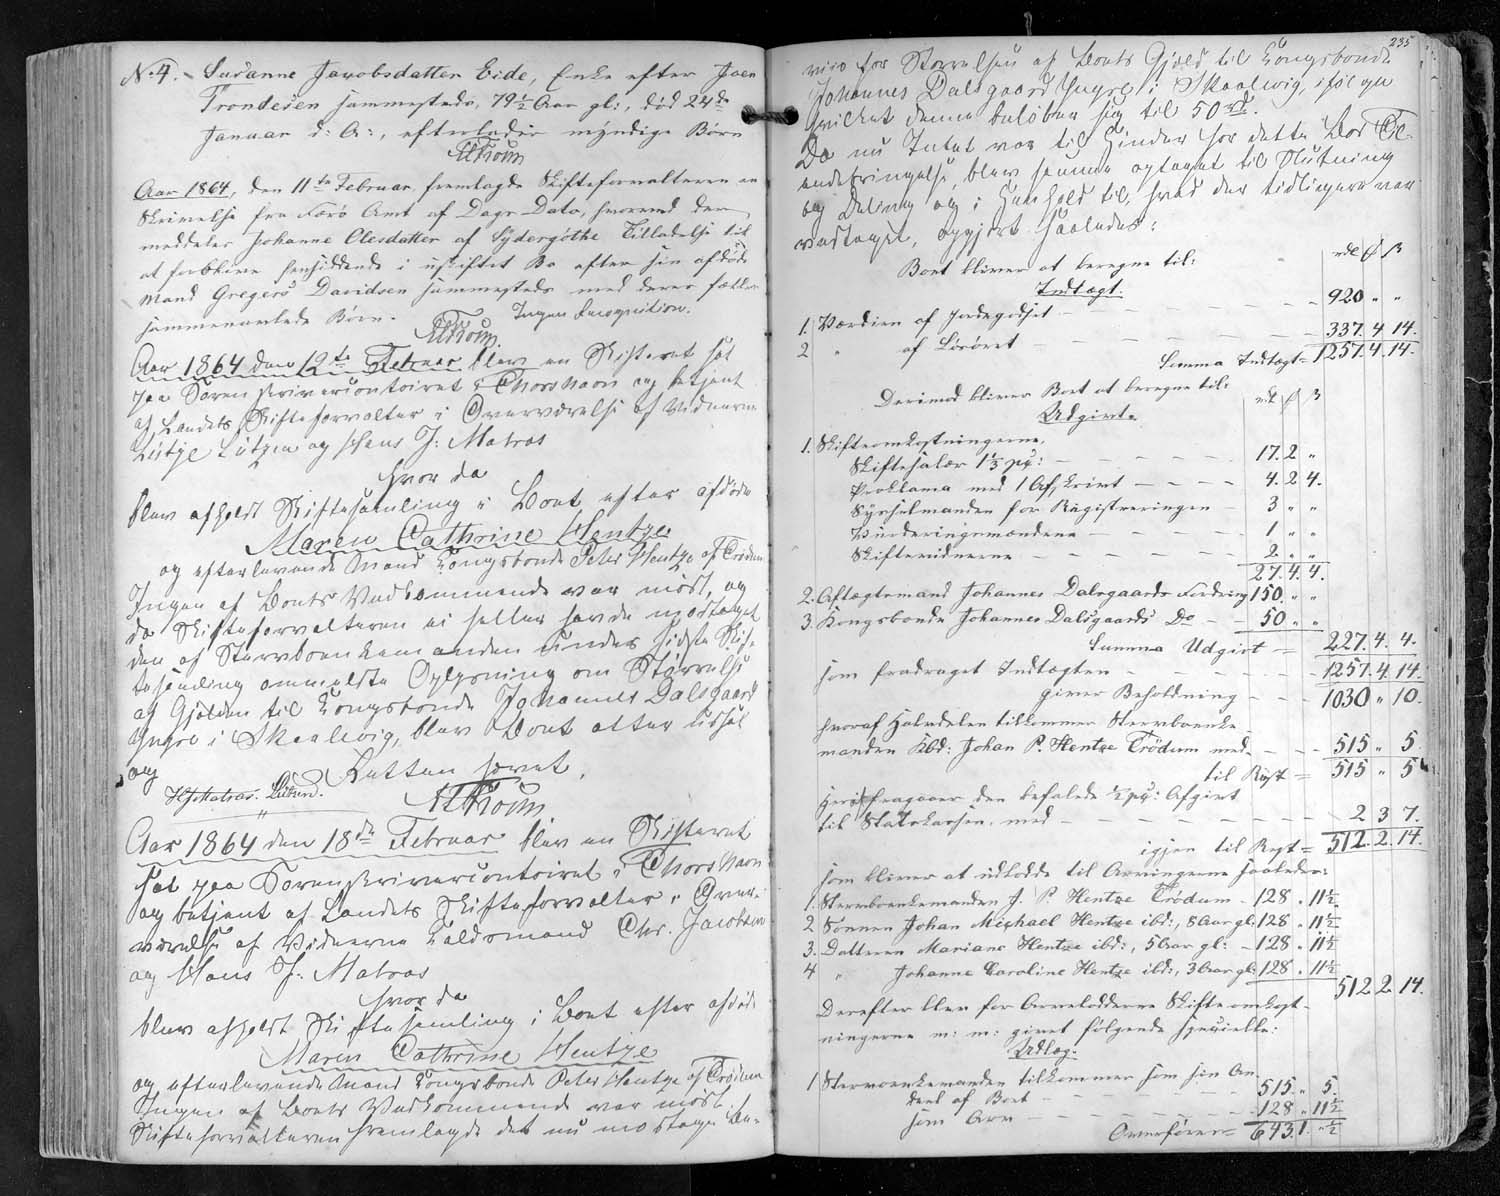 No 4. Susanne Jacobsdatter Eide, Enke efter Joen
Trondesen sammesteds, 79½ Aar gl:, død 24de
Januar d: A:, efterlader myndige Børn
HThom
Aar 1864, den 11te Februar, fremlagde Skifteforvalteren en
Skrivelse fra Færø Amt af Dags Dato, hvorved der
meddeles Johanne Olesdatter af Sydergøthe Tilladelse til
at forblive hensiddende i uskiftet Bo efter sin afdøde
Mand Gregers Davidsen sammesteds med deres fælles
sammenavlede Børn. Ingen Recognition.
HThom.
Aar 1864 den 12te Februar blev en Skifteret sat
paa Sorenskrivercontoiret i Thorshavn og betjent
af Landets Skifteforvalter i Overværelse af Vidnerne
Lütje Lützen og Hans J: Matras
hvor da
blev afholdt Skiftesamling i Boet efter afdøde
Maren Cathrine Hentze
og efterlevende Mand Kongsbonde Peter Hentze af Trødum
Ingen af Boets Vedkommende var mødt, og
da Skifteforvalteren ei heller havde modtaget
den af Stervboenkemanden under sidste Skif-
tesamling ommeldte Oplysning om Størrelse
af Gjelden til Kongsbonde Johannes Dalsgaard
Yngre i Skaalevig, blev Boet atter udsat
og
Retten hævet.
HJMatras. LLützen.
HThom
Aar 1864 den 18de Februar blev en Skifteret
sat paa Sorenskrivercontoiret i Thorshavn
og betjent af Landets Skifteforvalter i Over-
værelse af Vidnerne Chr. Jacobsen
og Hans J: Matras
hvor da
blev afholdt Skiftesamling i Boet efter afdøde
Maren Cathrine Hentze
og efterlevende Mand Kongsbonde Peter Hentze af Trødum
Ingen af Boets Vedkommende var mødt.
Skifteforvalteren fremlagde det nu modtagne Be-
235
viis for Størrelsen af Boets Gjæld til Kongsbonde
Johannes Dalsgaard Yngre i Skaalevig, ifølge
hvilket denne beløber sig til 50 rd.
Da nu Intet var til Hinder for dette Boes Til-
endebringelse, blev samme optaget til Slutning
og Deling og i Henhold til, hvad der tidligere var
vedtaget, opgjort saaledes:
Boet bliver at beregne til: rdl ₰ ß
Indtægt.
1. Værdien af Jordegodset - - - 920 " "
2 " af Løsøret - - - 337. 4. 14.
Summa Indtægt = 1257. 4. 14.
Derimod bliver Boet at beregne til: rdl ₰ ß
Udgivt.
1. Skifteomkostningerne,
Skiftesalær 1⅓ pC: - - - 17. 2 "
Proklama med 1 Afskrivt - - - 4. 2 4.
Sysselmanden for Registreringen - 3 " "
Vurderingsmændene - - - 1 " "
Skiftevidnerne - - - 2 " "
27. 4. 4.
2. Aftægtsmand Johannes Dalsgaards Fordring 150 " "
3. Kongsbonde Johannes Dalsgaards Do - - 50 " "
Summa Udgivt = 227. 4. 4.
som fradraget Indtægten - - - 1257. 4. 14.
giver Beholdning - - - 1030 " 10.
hvoraf Halvdelen tilkommer Stervboenke
manden Kbd: Johan P. Hentze Trödum med - - 515 " 5
til Rest = 515 " 5
Heri fragaaer den befalede ½ pC: Afgivt
til Statskassen, med - - - 2 3 7.
igjen til Rest = 512. 2. 14.
som bliver at udlodde til Arvingerne saaledes:
1. Stervboenkemanden J. P. Hentze Trödum - 128 " 11½
2 Sønnen Johan Michael Hentze ibd:, 8 Aar gl: 128 " 11½
3. Datteren Mariane Hentze ibd:, 5 Aar gl: - 128 " 11½
4 " Johanne Caroline Hentze ibd:, 3 Aar gl: 128 " 11½
512. 2. 14.
Derefter blev for Arvelodderne Skifteomkost-
ningerne m: m: gjort følgende specielle:
Udlæg.
1 Stervboenkemanden tilkommer som sin An
deel af Boet - - - 515 " 5.
som Arv - - - 128 " 11½
Overføres = 643. 1. " ½